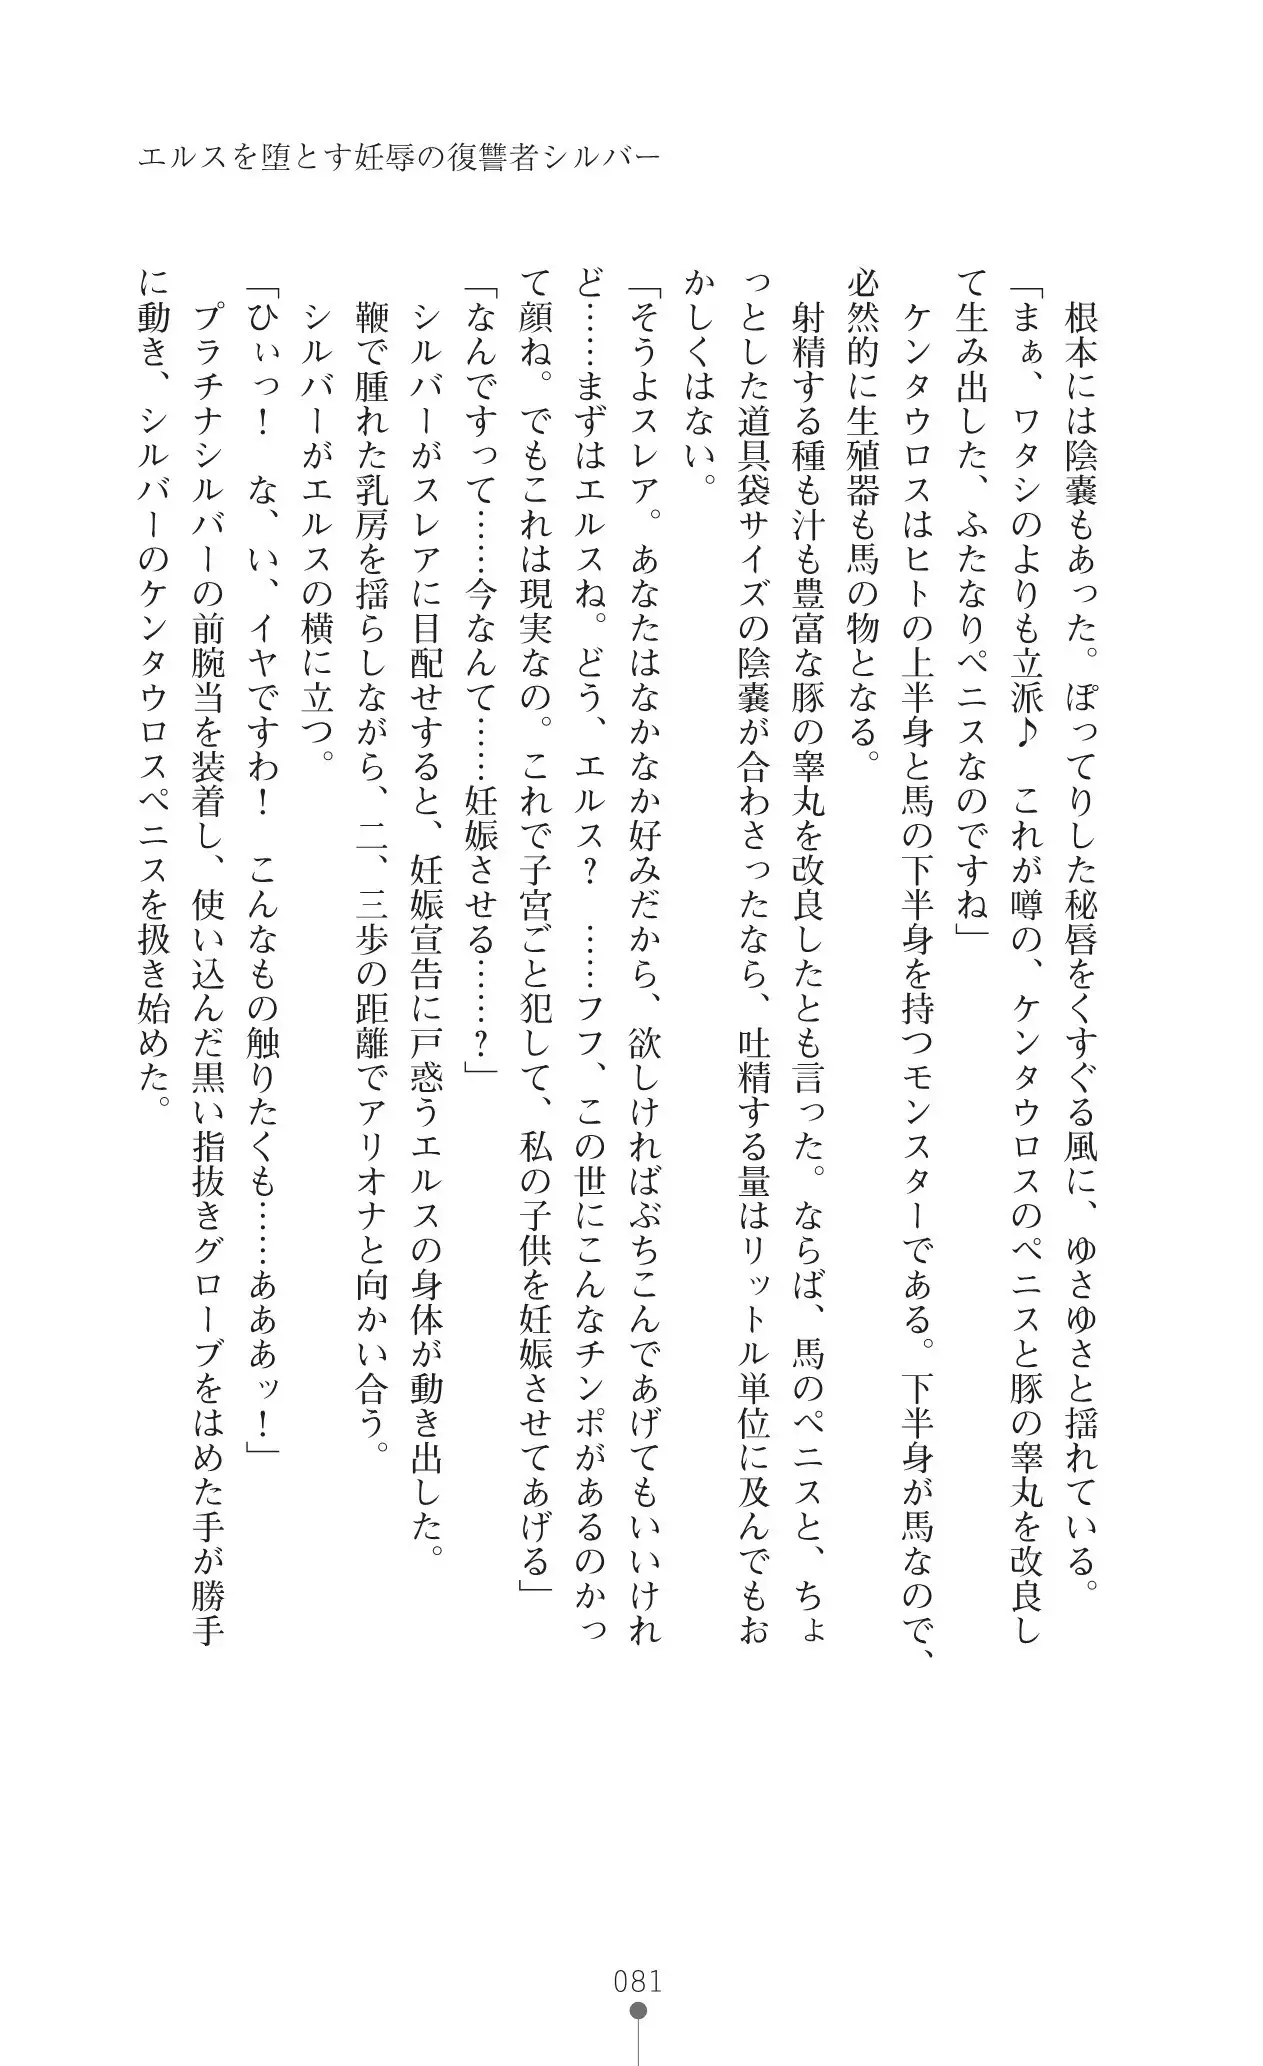 エルスを堕とす妊辱の復讐者シルバー
　根本には陰嚢もあった。ぽってりした秘唇をくすぐる風に、ゆさゆさと揺れている。
「まぁ、ワタシのよりも立派♪　これが噂の、ケンタウロスのペニスと豚の睾丸を改良し
て生み出した、ふたなりペニスなのですね」
　ケンタウロスはヒトの上半身と馬の下半身を持つモンスターである。下半身が馬なので、
必然的に生殖器も馬の物となる。
　射精する種も汁も豊富な豚の睾丸を改良したとも言った。ならば、馬のペニスと、ちょ
っとした道具袋サイズの陰嚢が合わさったなら、吐精する量はリットル単位に及んでもお
かしくはない。
「そうよスレア。あなたはなかなか好みだから、欲しければぶちこんであげてもいいけれ
ど……まずはエルスね。どう、エルス？　……フフ、この世にこんなチンポがあるのかっ
て顔ね。でもこれは現実なの。これで子宮ごと犯して、私の子供を妊娠させてあげる」
「なんですって……今なんて……妊娠させる……？」
　シルバーがスレアに目配せすると、妊娠宣告に戸惑うエルスの身体が動き出した。
　鞭で腫れた乳房を揺らしながら、二、三歩の距離でアリオナと向かい合う。
　シルバーがエルスの横に立つ。
「ひぃっ！　な、い、イヤですわ！　こんなもの触りたくも……あああッ！」
　プラチナシルバーの前腕当を装着し、使い込んだ黒い指抜きグローブをはめた手が勝手
に動き、シルバーのケンタウロスペニスを扱き始めた。
081